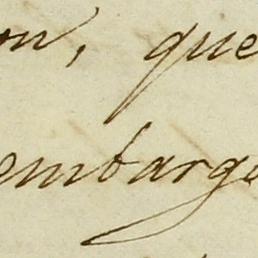 on, que
embarge